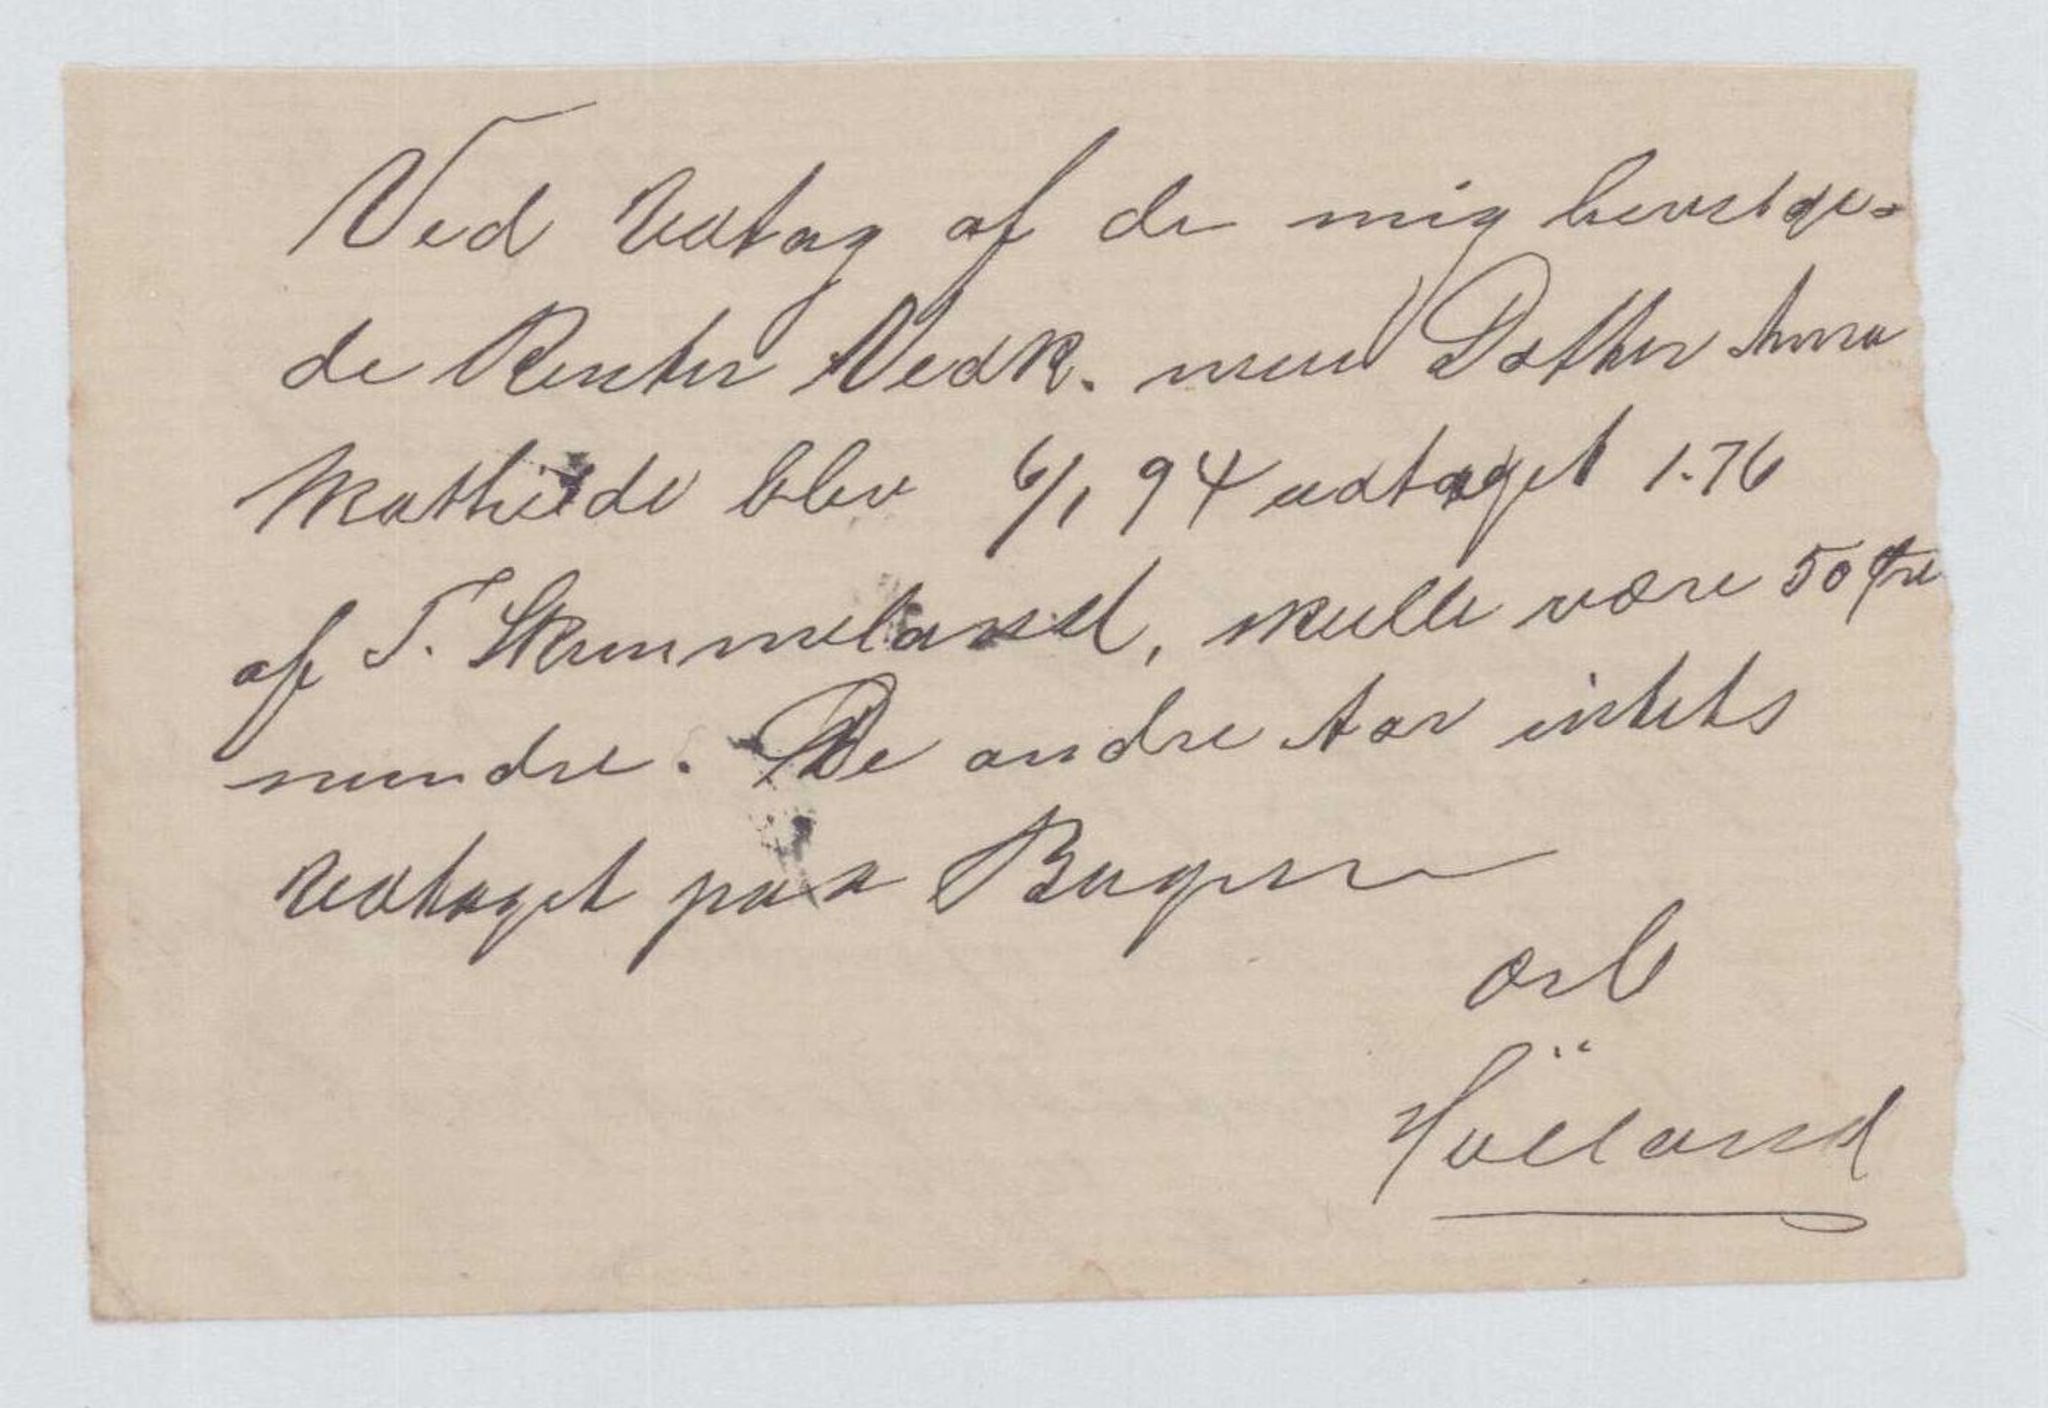 Ved Udtag af de mig bevilge-
de Renter Vedk. min Datter Anna
Mathilde blev 6/1 94 udtaget 1.76
af T. Skimmeland, skulle være 50 Øre
mindre. De andre har intet
Udtaget paa Bogen
ærb
Höiland